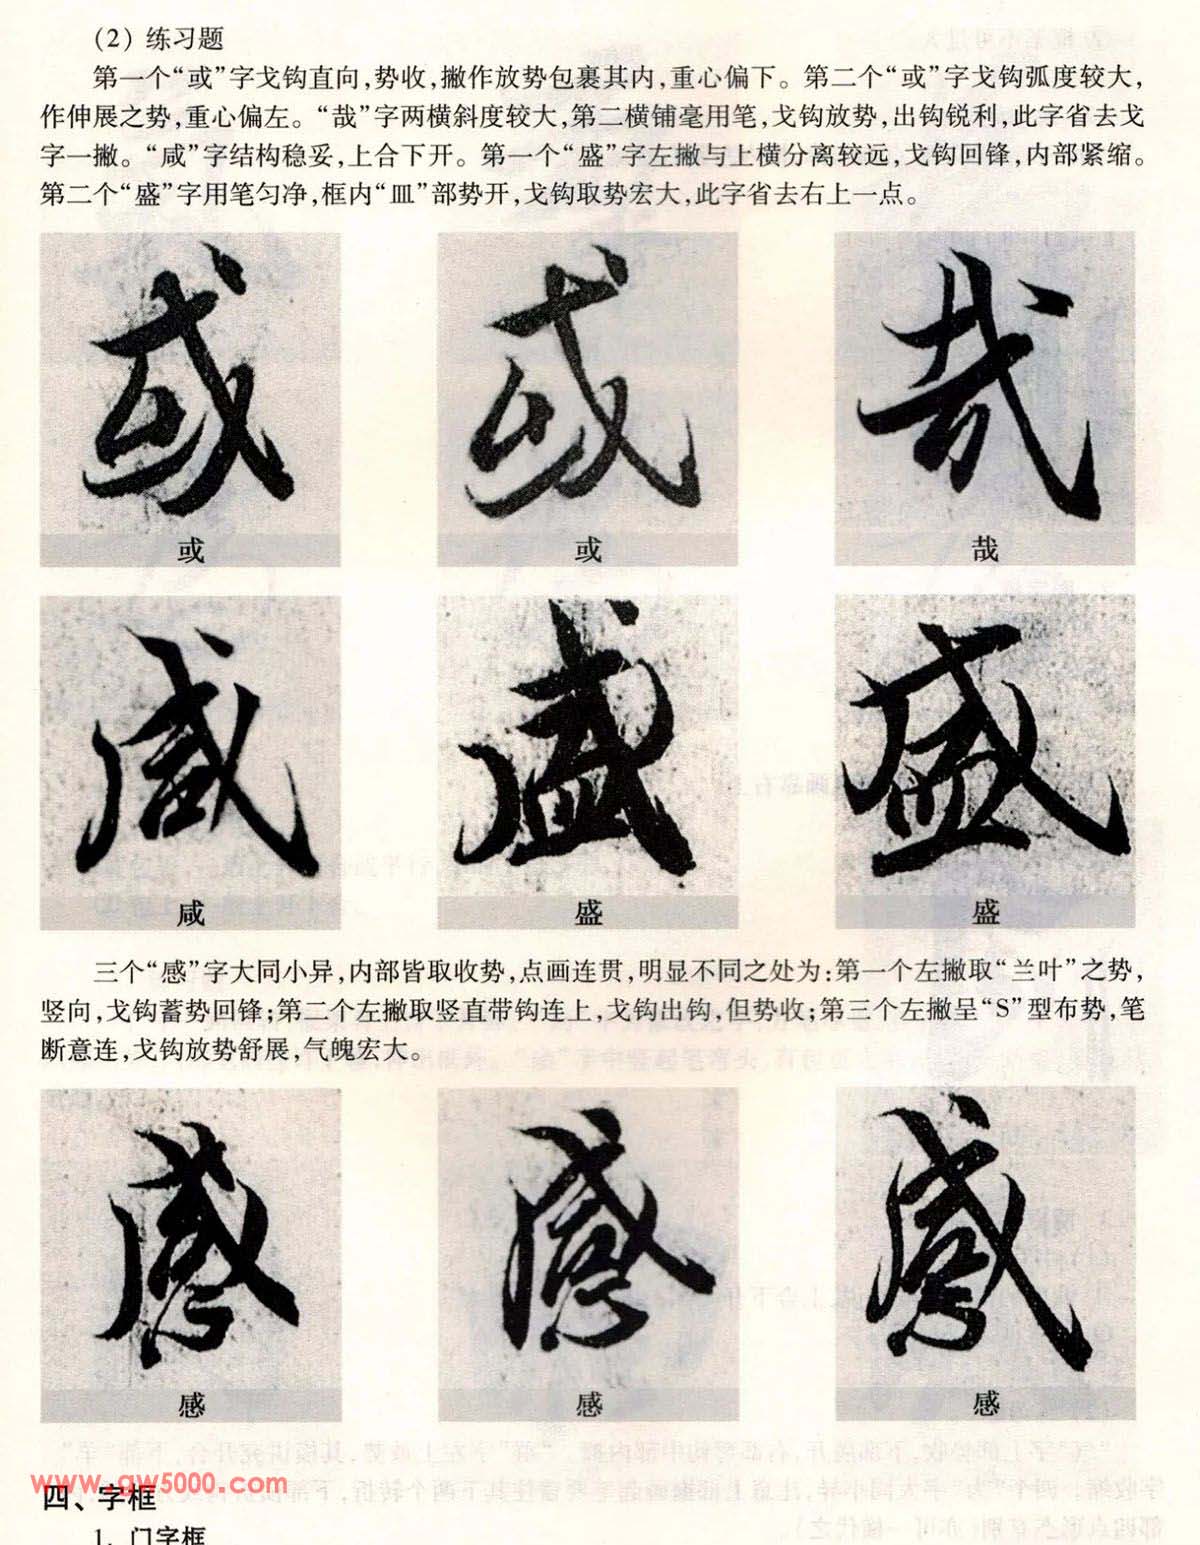 （2）练习题
第一个“或”字戈钩直向，势收，撇作放势包裹其内，重心偏下。第二个“或”字戈钩弧度较大，
作伸展之势，重心偏左。“哉”字两横斜度较大，第二横铺毫用笔，戈钩放势，出钩锐利，此字省去戈
字一撇。“咸”字结构稳妥，上合下开。第一个“盛”字左撇与上横分离较远，戈钩回锋，内部紧缩。
第二个“盛”字用笔匀净，框内“皿”部势开，戈钩取势宏大，此字省去右上一点。
或 或 哉
或 或 哉
咸 盛 盛
咸 盛 盛
三个“感”字大同小异，内部皆取收势，点画连贯，明显不同之处为：第一个左撇取“兰叶”之势，
竖向，戈钩蓄势回锋；第二个左撇取竖直带钩连上，戈钩出钩，但势收；第三个左撇呈“S”型布势，笔
断意连，戈钩放势舒展，气魄宏大。
感 感 感
感 感 感
www.gw5000.com
四、字框
1. 门字框